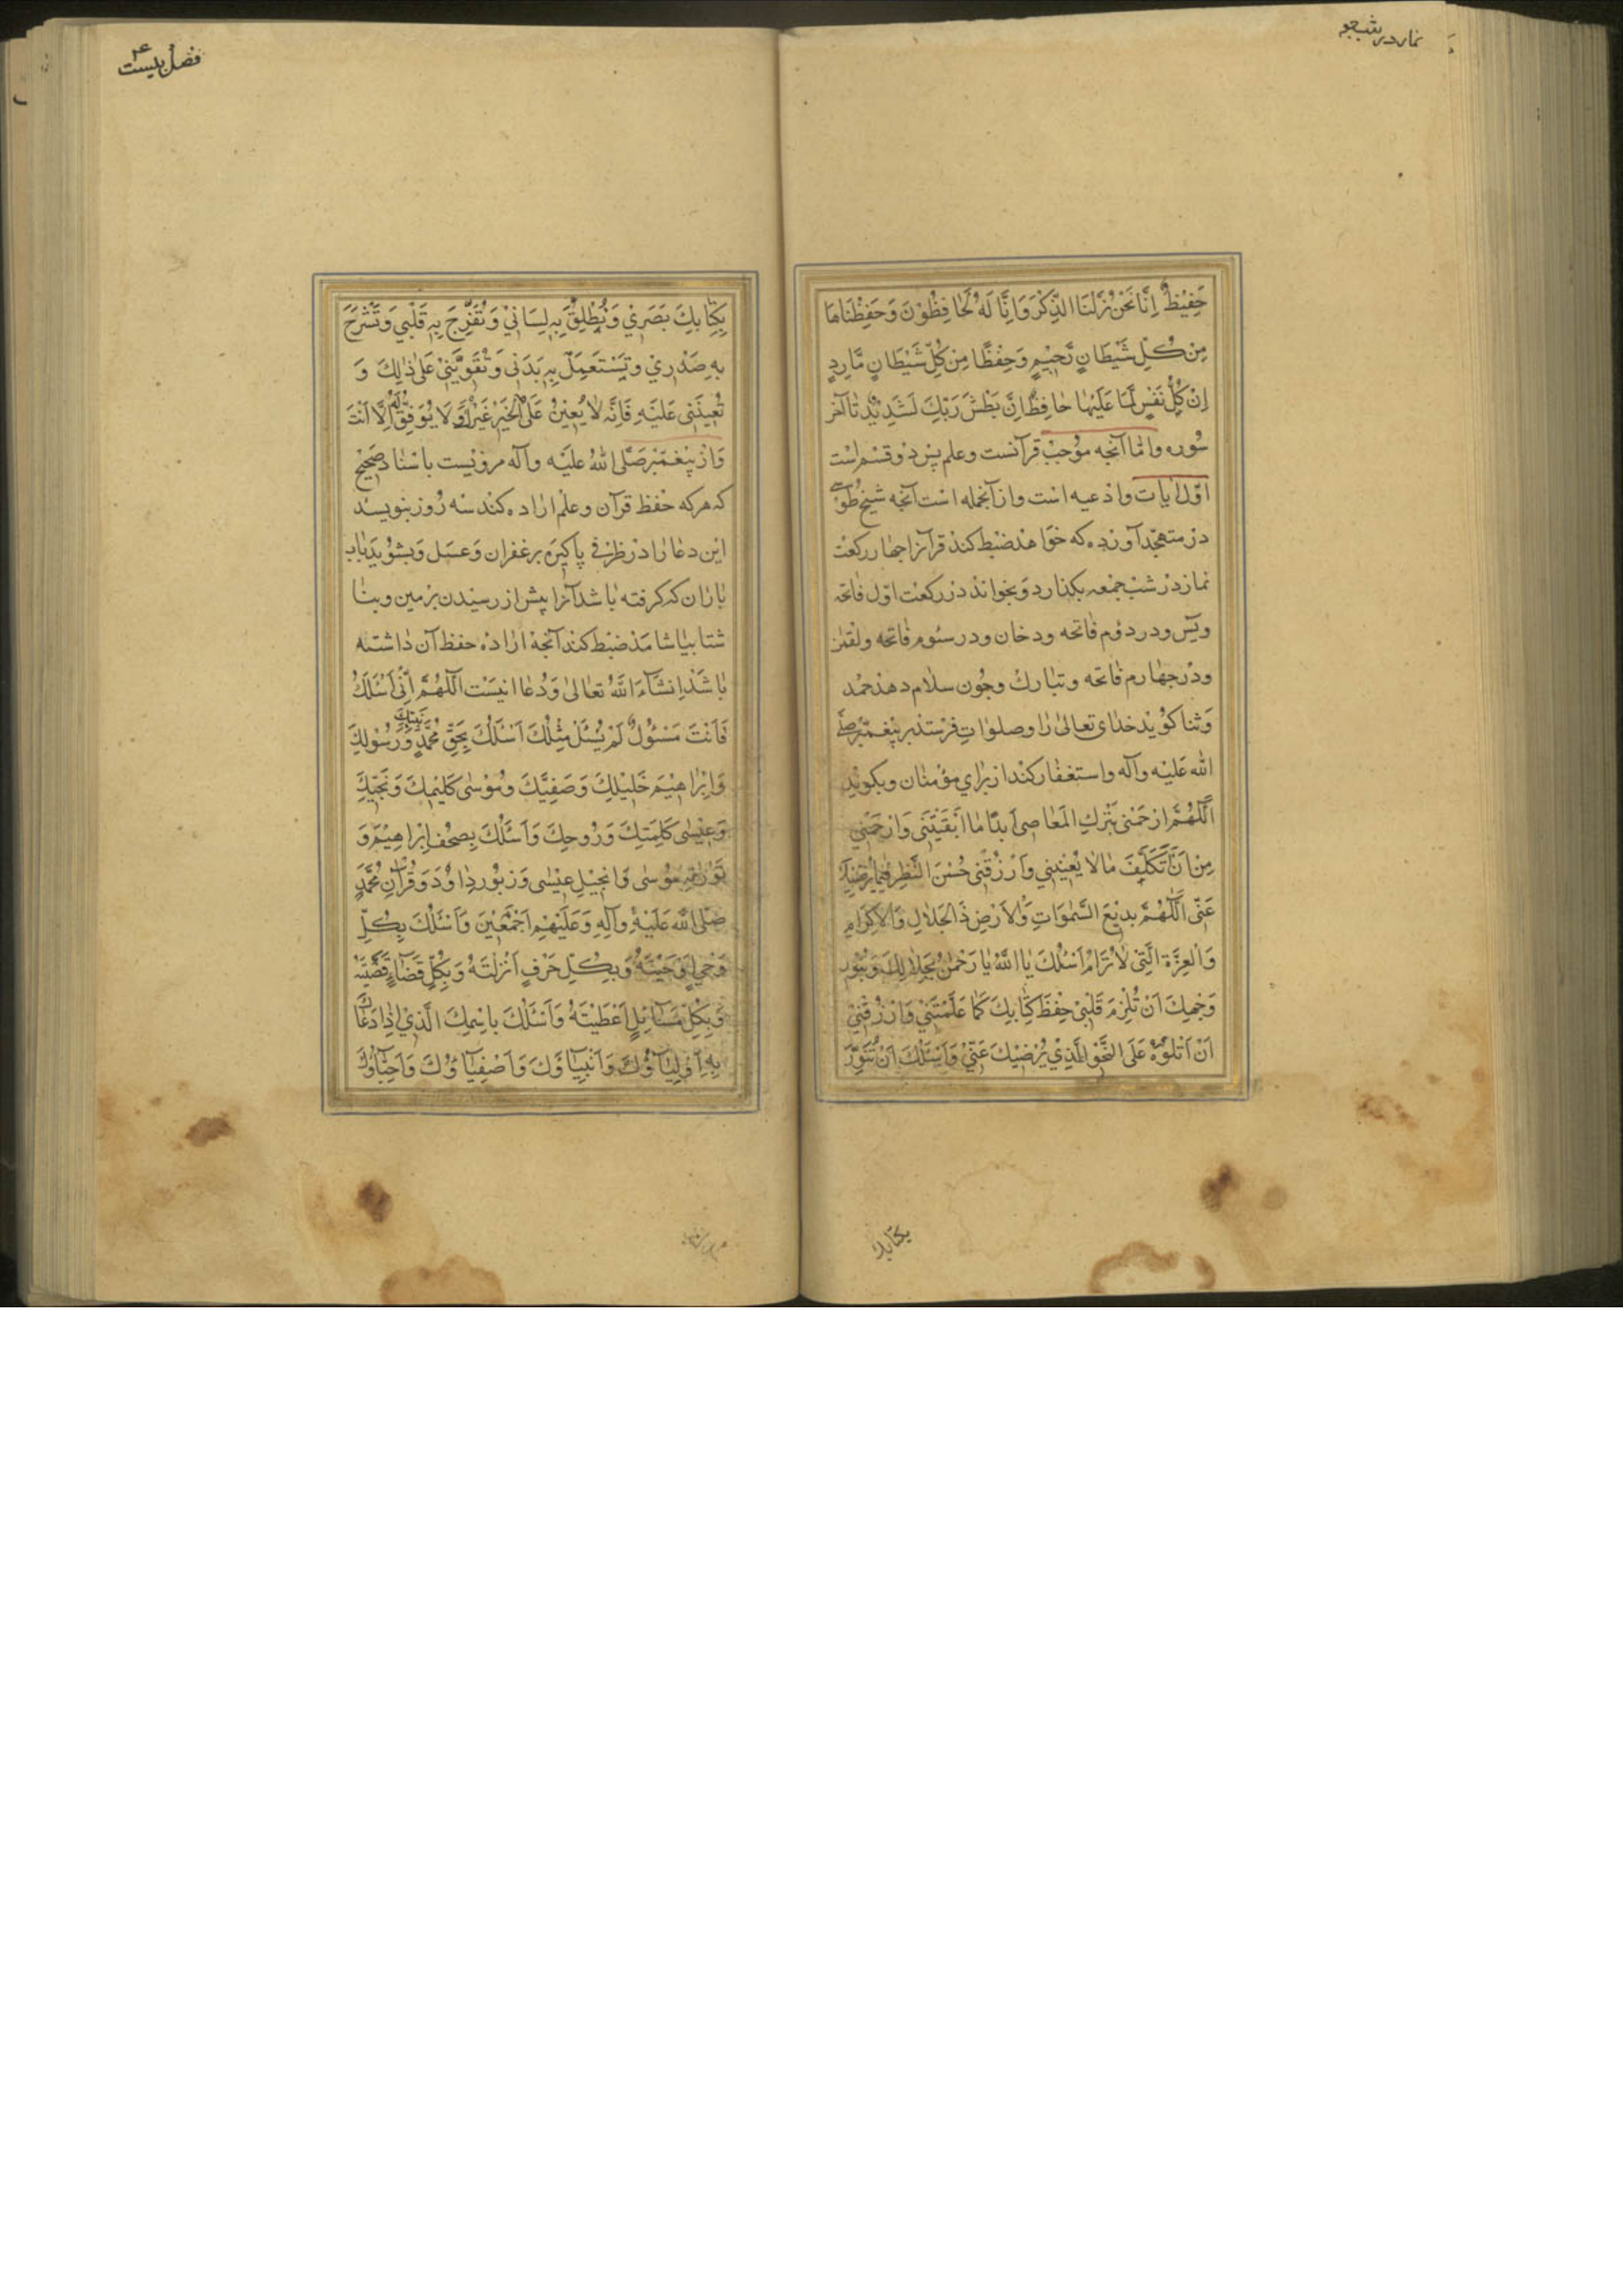 نماز در شب جمعه
حَفِيظٌ اِنَّا نَحْنُ نَزَّلْنَا الذِّكْرَ وَاِنَّا لَهُ لَحَافِظُوْنَ وَحَفِظْنَاهَا
مِنْ كُلِّ شَيْطَانٍ رَّجِيْمٍ وَحِفْظًا مِنْ كُلِّ شَيْطَانٍ مَّارِدٍ
اِنْ كُلُّ نَفْسٍ لَمَّا عَلَيْهَا حَافِظٌ اِنَّ بَطْشَ رَبِّكَ لَشَدِيْدٌ تا آخر
سُوره واما آنچه مؤجب قرآنست وعلم پس دو قسم است
اوّل ايات وادعيه است وازآنجمله است آنچه شيخ طوسى
در متهجّد آورده كه خواهد ضبط كند قرآنرا چهار ركعت
نماز در شب جمعه بكذارد و بخواند در ركعت اوّل فاتحه
ويٓس ودر دوّم فاتحه ودخان ودر سوم فاتحه ولقمن
ودر چهارم فاتحه وتبارك وچون سلام دهد حمد
وثنا كويد خداى تعالى را وصلوات فرستد بر پيغمبر صلى
الله عليه وآله واستغفار كند از براي مؤمنان وبكويد
اَللّٰهُمَّ ارْحَمْنِي بِتَرْكِ الْمَعَاصِي اَبَدًا مَا اَبْقَيْتَنِي وَارْحَمْنِي
مِنْ اَنْ اَتَكَلَّفَ مَا لَا يُعْنِيْنِي وَارْزُقْنِي حُسْنَ النَّظَرِ فِيمَا يُرْضِيْكَ
عَنِّي اَللّٰهُمَّ بَدِيْعَ السَّمٰوَاتِ وَالْاَرْضِ ذَا الْجَلَالِ وَالْاِكْرَامِ
وَالْعِزَّةِ الَّتِي لَا تُرَامُ اَسْئَلُكَ يَا اَللّٰهُ يَا رَحْمٰنُ بِجَلَالِكَ وَبِنُوْرِ
وَجْهِكَ اَنْ تُلْزِمَ قَلْبِيْ حِفْظَ كِتَابِكَ كَمَا عَلَّمْتَنِيْ وَارْزُقْنِيْ
اَنْ اَتْلُوَهُ عَلَى النَّحْوِ الَّذِيْ يُرْضِيْكَ عَنِّيْ وَاَسْئَلُكَ اَنْ تُنَوِّرَ
بكتابك
فصل بيست ۴
بِكِتَابِكَ بَصَرِيْ وَتُطْلِقَ بِهِ لِسَانِيْ وَتُفَرِّجَ بِهِ قَلْبِي وَتَشْرَحَ
بِهِ صَدْرِيْ وَتَسْتَعْمِلَ بِهِ بَدَنِي وَتُقَوِّيَنِيْ عَلَى ذٰلِكَ وَ
تُعِيْنَنِي عَلَيْهِ فَاِنَّهُ لَا يُعِيْنُ عَلَى الْخَيْرِ غَيْرُكَ وَلَا يُوَفِّقُ لَهُ اِلَّا اَنْتَ
واز پيغمبر صلّى الله عليه وآله مرويست باسناد صحيح
كه هركه حفظ قرآن وعلم اراده كند سه روز بنويسد
اين دعا را در ظرفي پاكيزه بزعفران وعسل وبشويد بآب
باران كه كرفته باشد آنرا پيش از رسيدن بزمين وبنا
شتا بياشامد ضبط كند آنچه اراده حفظ آن داشته
باشد انشآء الله تعالى ودعا اينست اَللّٰهُمَّ اِنِّي اَسْئَلُكَ
فَاَنْتَ مَسْئُوْلٌ لَمْ يُسْئَلْ مِثْلُكَ اَسْئَلُكَ بِحَقِّ مُحَمَّدٍ نَبِيِّكَ وَرَسُوْلِكَ
وَاِبْرَاهِيْمَ خَلِيْلِكَ وَصَفِيِّكَ وَمُوْسٰى كَلِيْمِكَ وَنَجِيِّكَ
وَعِيْسٰى كَلِمَتِكَ وَرُوحِكَ وَاَسْئَلُكَ بِصُحُفِ اِبْرَاهِيْمَ وَ
تَوْرٰيةِ مُوْسٰى وَاِنْجِيْلِ عِيْسٰى وَزَبُوْرِ دَاوُدَ وَقُرْآنِ مُحَمَّدٍ
صَلَّى اللهُ عَلَيْهِ وآلِهِ وَعَلَيْهِمْ اَجْمَعِيْنَ وَاَسْئَلُكَ بِكُلِّ
وَحْيٍ اَوْحَيْتَهُ وَبِكُلِّ حَرْفٍ اَنْزَلْتَهُ وَبِكُلِّ قَضَاءٍ قَضَيْتَهُ
وَبِكُلِّ سَآئِلٍ اَعْطَيْتَهُ وَاَسْئَلُكَ بِاسْمِكَ الَّذِيْ اِذَا دَعَاكَ
بِهِ اَوْلِيَآؤُكَ وَاَنْبِيَاؤُكَ وَاَصْفِيَاؤُكَ وَاَحِبَّاؤُكَ